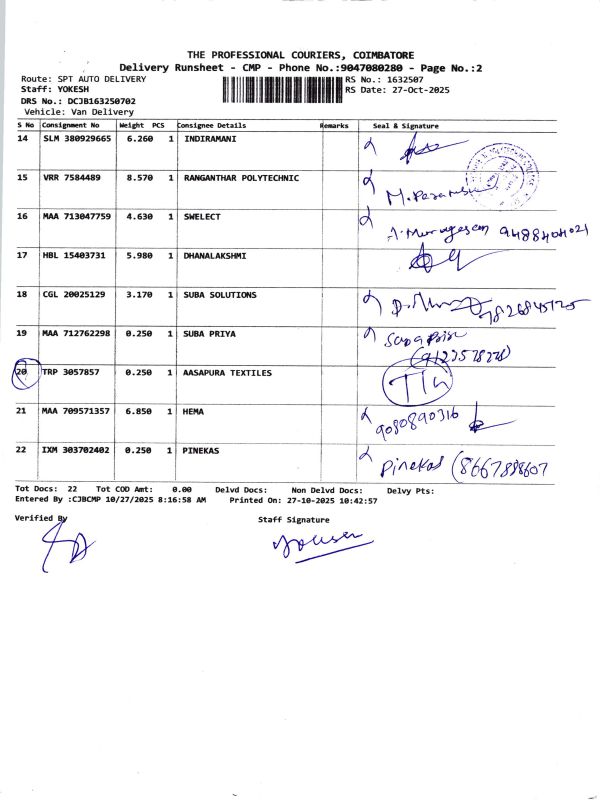 THE PROFESSIONAL COURIERS, COIMBATORE
Delivery Runsheet - CMP - Phone No.:9047080280 - Page No.:2
Route: SPT AUTO DELIVERY RS No.: 1632507
Staff: YOKESH RS Date: 27-Oct-2025
DRS No.: DCJB163250702
Vehicle: Van Delivery
S No Consignment No Weight PCS Consignee Details Remarks Seal & Signature
14 SLM 380929665 6.260 1 INDIRAMANI
15 VRR 7584489 8.570 1 RANGANTHAR POLYTECHNIC
16 MAA 713047759 4.630 1 SWELECT
A. Murugesan 9488404021
17 HBL 15403731 5.980 1 DHANALAKSHMI
18 CGL 20025129 3.170 1 SUBA SOLUTIONS
19 MAA 712762298 0.250 1 SUBA PRIYA
20 TRP 3057857 0.250 1 AASAPURA TEXTILES
21 MAA 709571357 6.850 1 HEMA
9080890316
22 IXM 303702402 0.250 1 PINEKAS
Pinekas
Tot Docs: 22 Tot COD Amt: 0.00 Delvd Docs: Non Delvd Docs: Delvy Pts:
Entered By :CJBCMP 10/27/2025 8:16:58 AM Printed On: 27-10-2025 10:42:57
Verified By Staff Signature